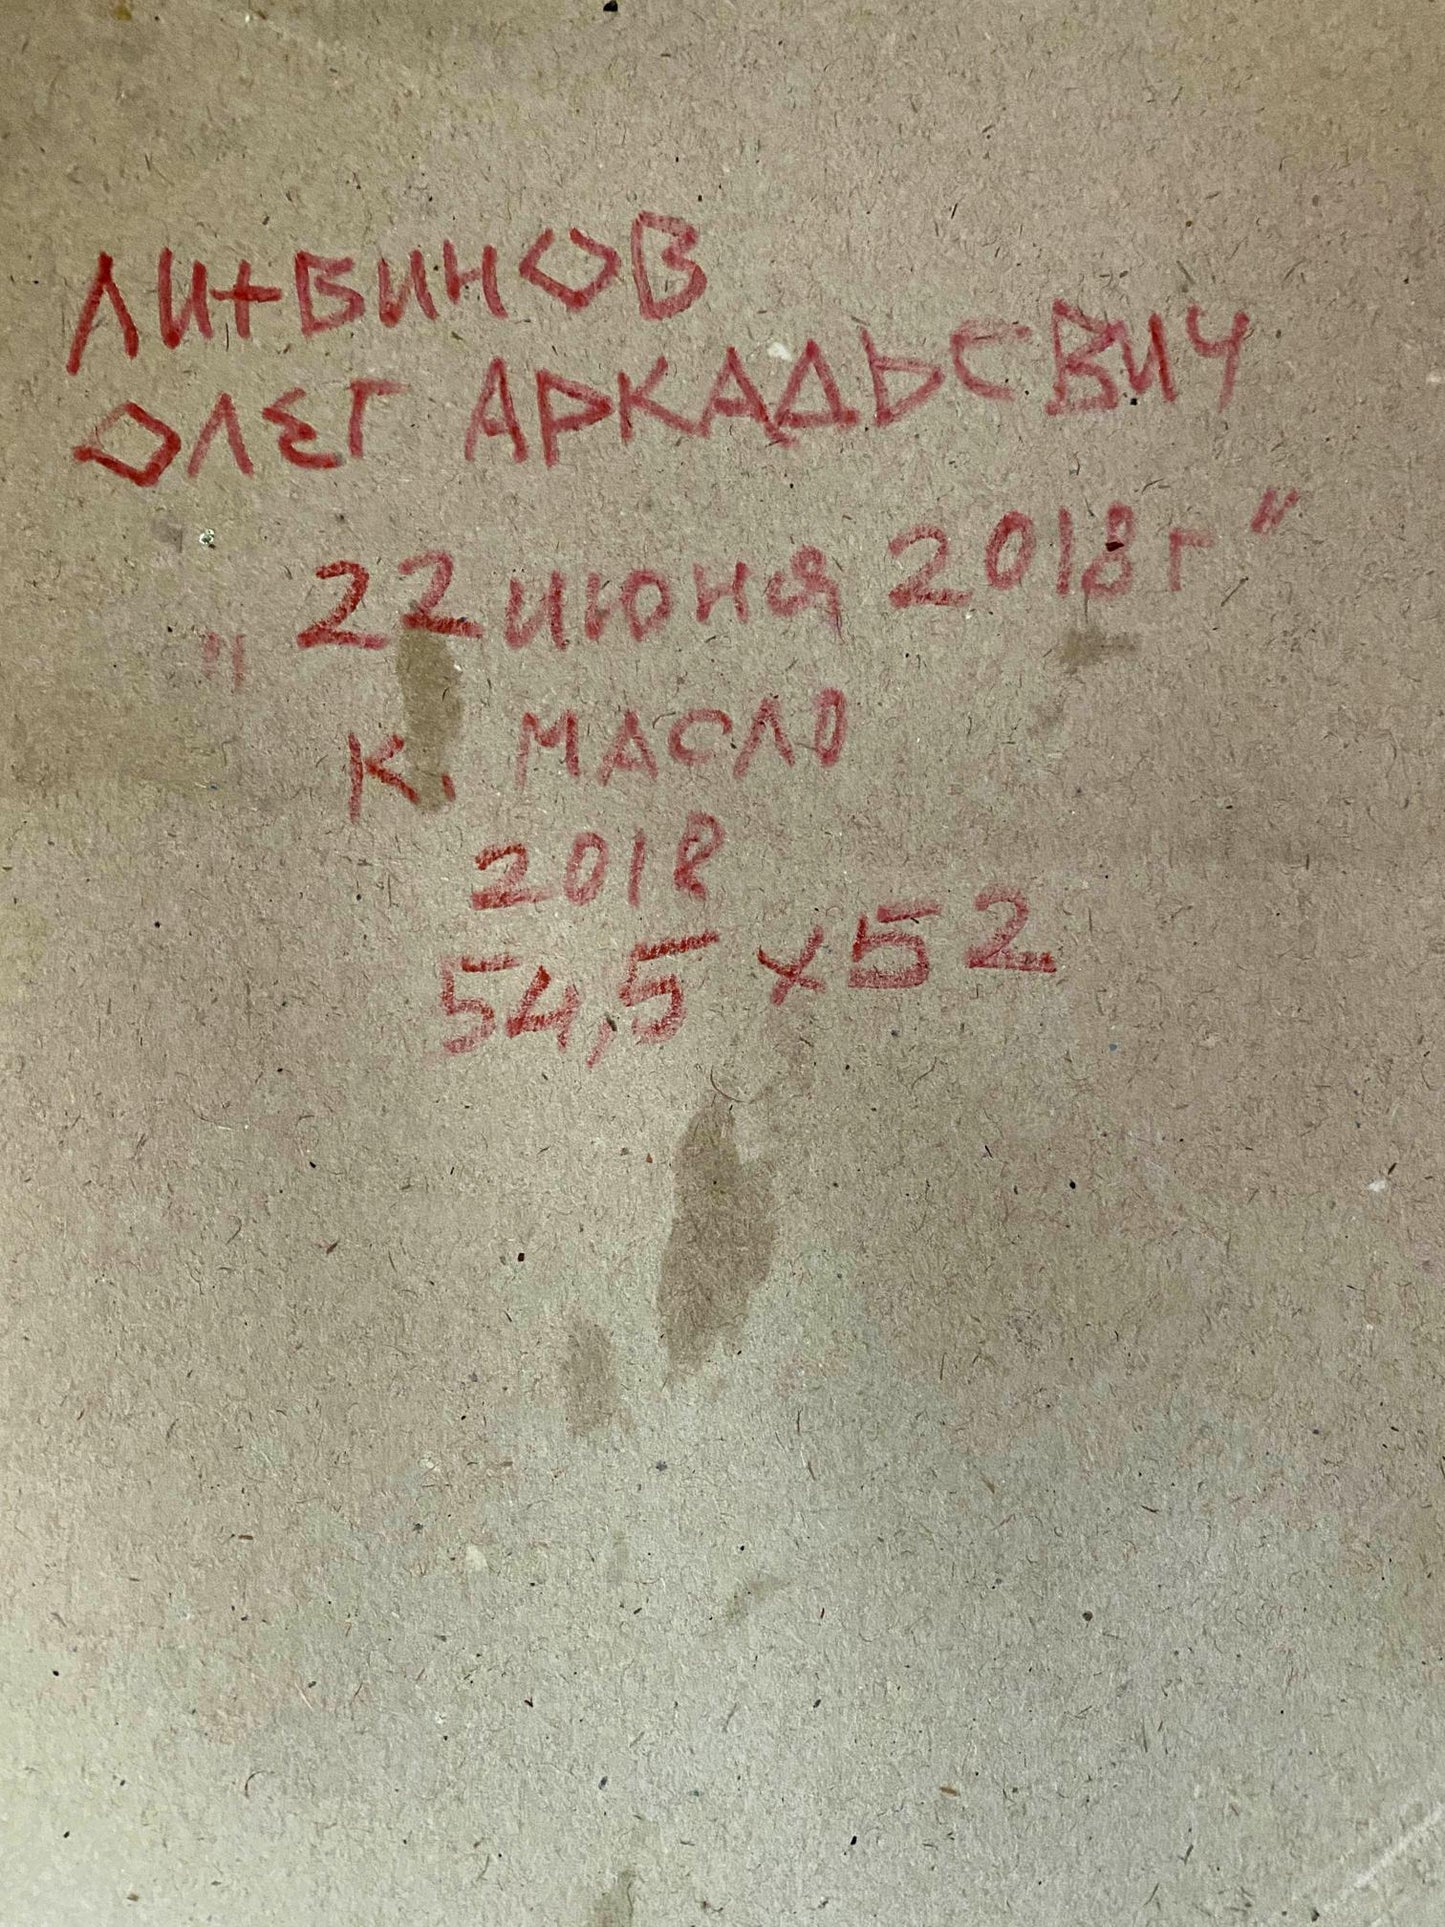 ЛИТВИНОВ
ОЛЕГ АРКАДЬЕВИЧ
"22 июня 2018г"
К. МАСЛО
2018
54,5 x 52